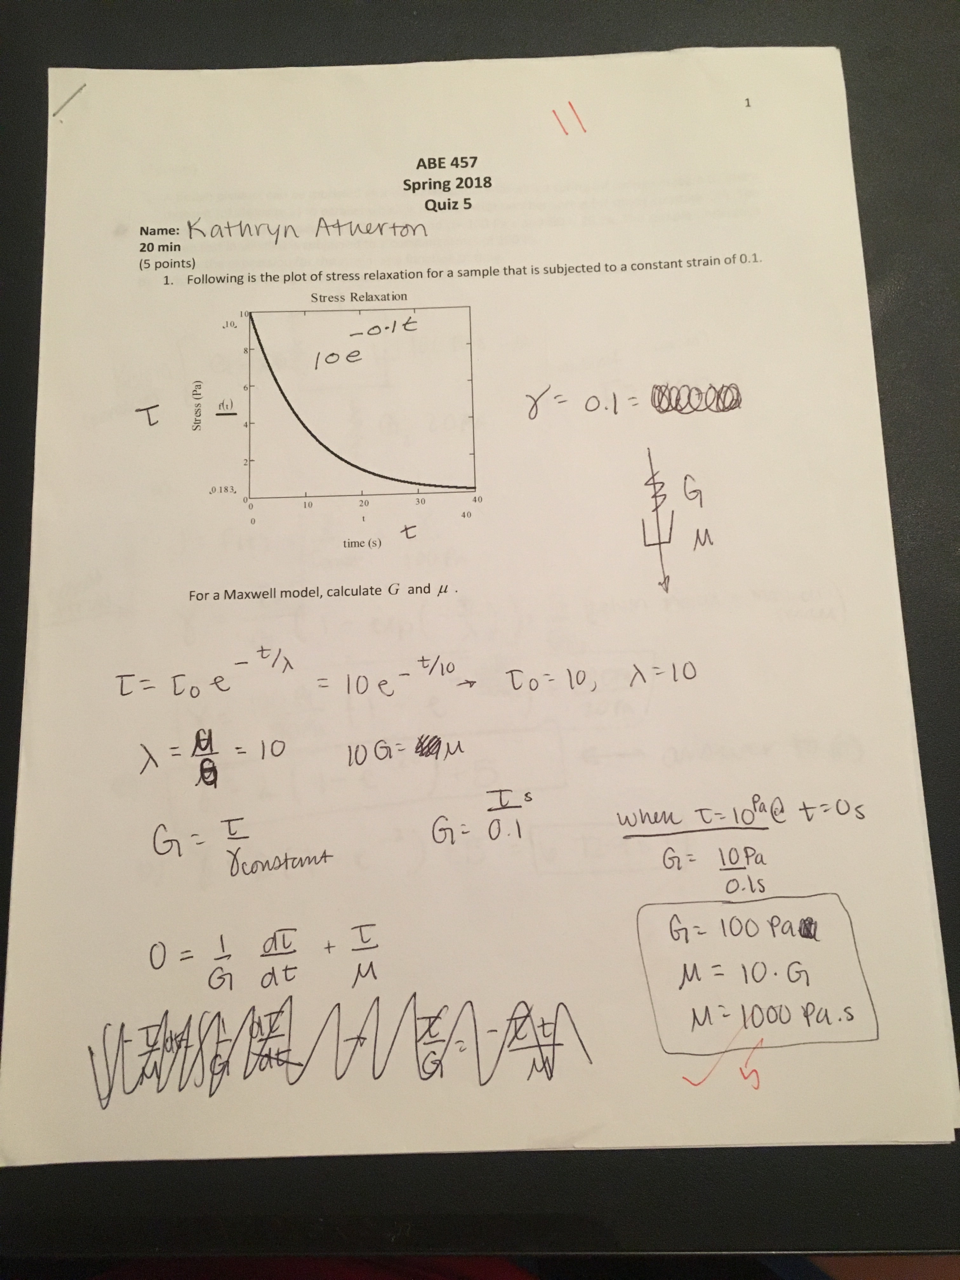 1
11
ABE 457
Spring 2018
Quiz 5
Name: Kathryn Atherton
20 min
(5 points)
1. Following is the plot of stress relaxation for a sample that is subjected to a constant strain of 0.1.
Stress Relaxation
10e^-0.1t
,10,
10
8
6
4
2
0
,0.183,
Stress (Pa)
τ
0 10 20 30 40
0 t 40
time (s) t
γ = 0.1 =
G
μ
For a Maxwell model, calculate G and μ .
τ = τ₀ e^-t/λ = 10 e^-t/10 → τ₀ = 10, λ = 10
λ = μ/G = 10 10 G = μ
G = τ/γconstant G = τ/0.1 s
when τ = 10 Pa @ t = 0s
G = 10 Pa/0.1s
0 = 1/G dτ/dt + τ/μ
G = 100 Pa
μ = 10 · G
μ = 1000 Pa.s
5